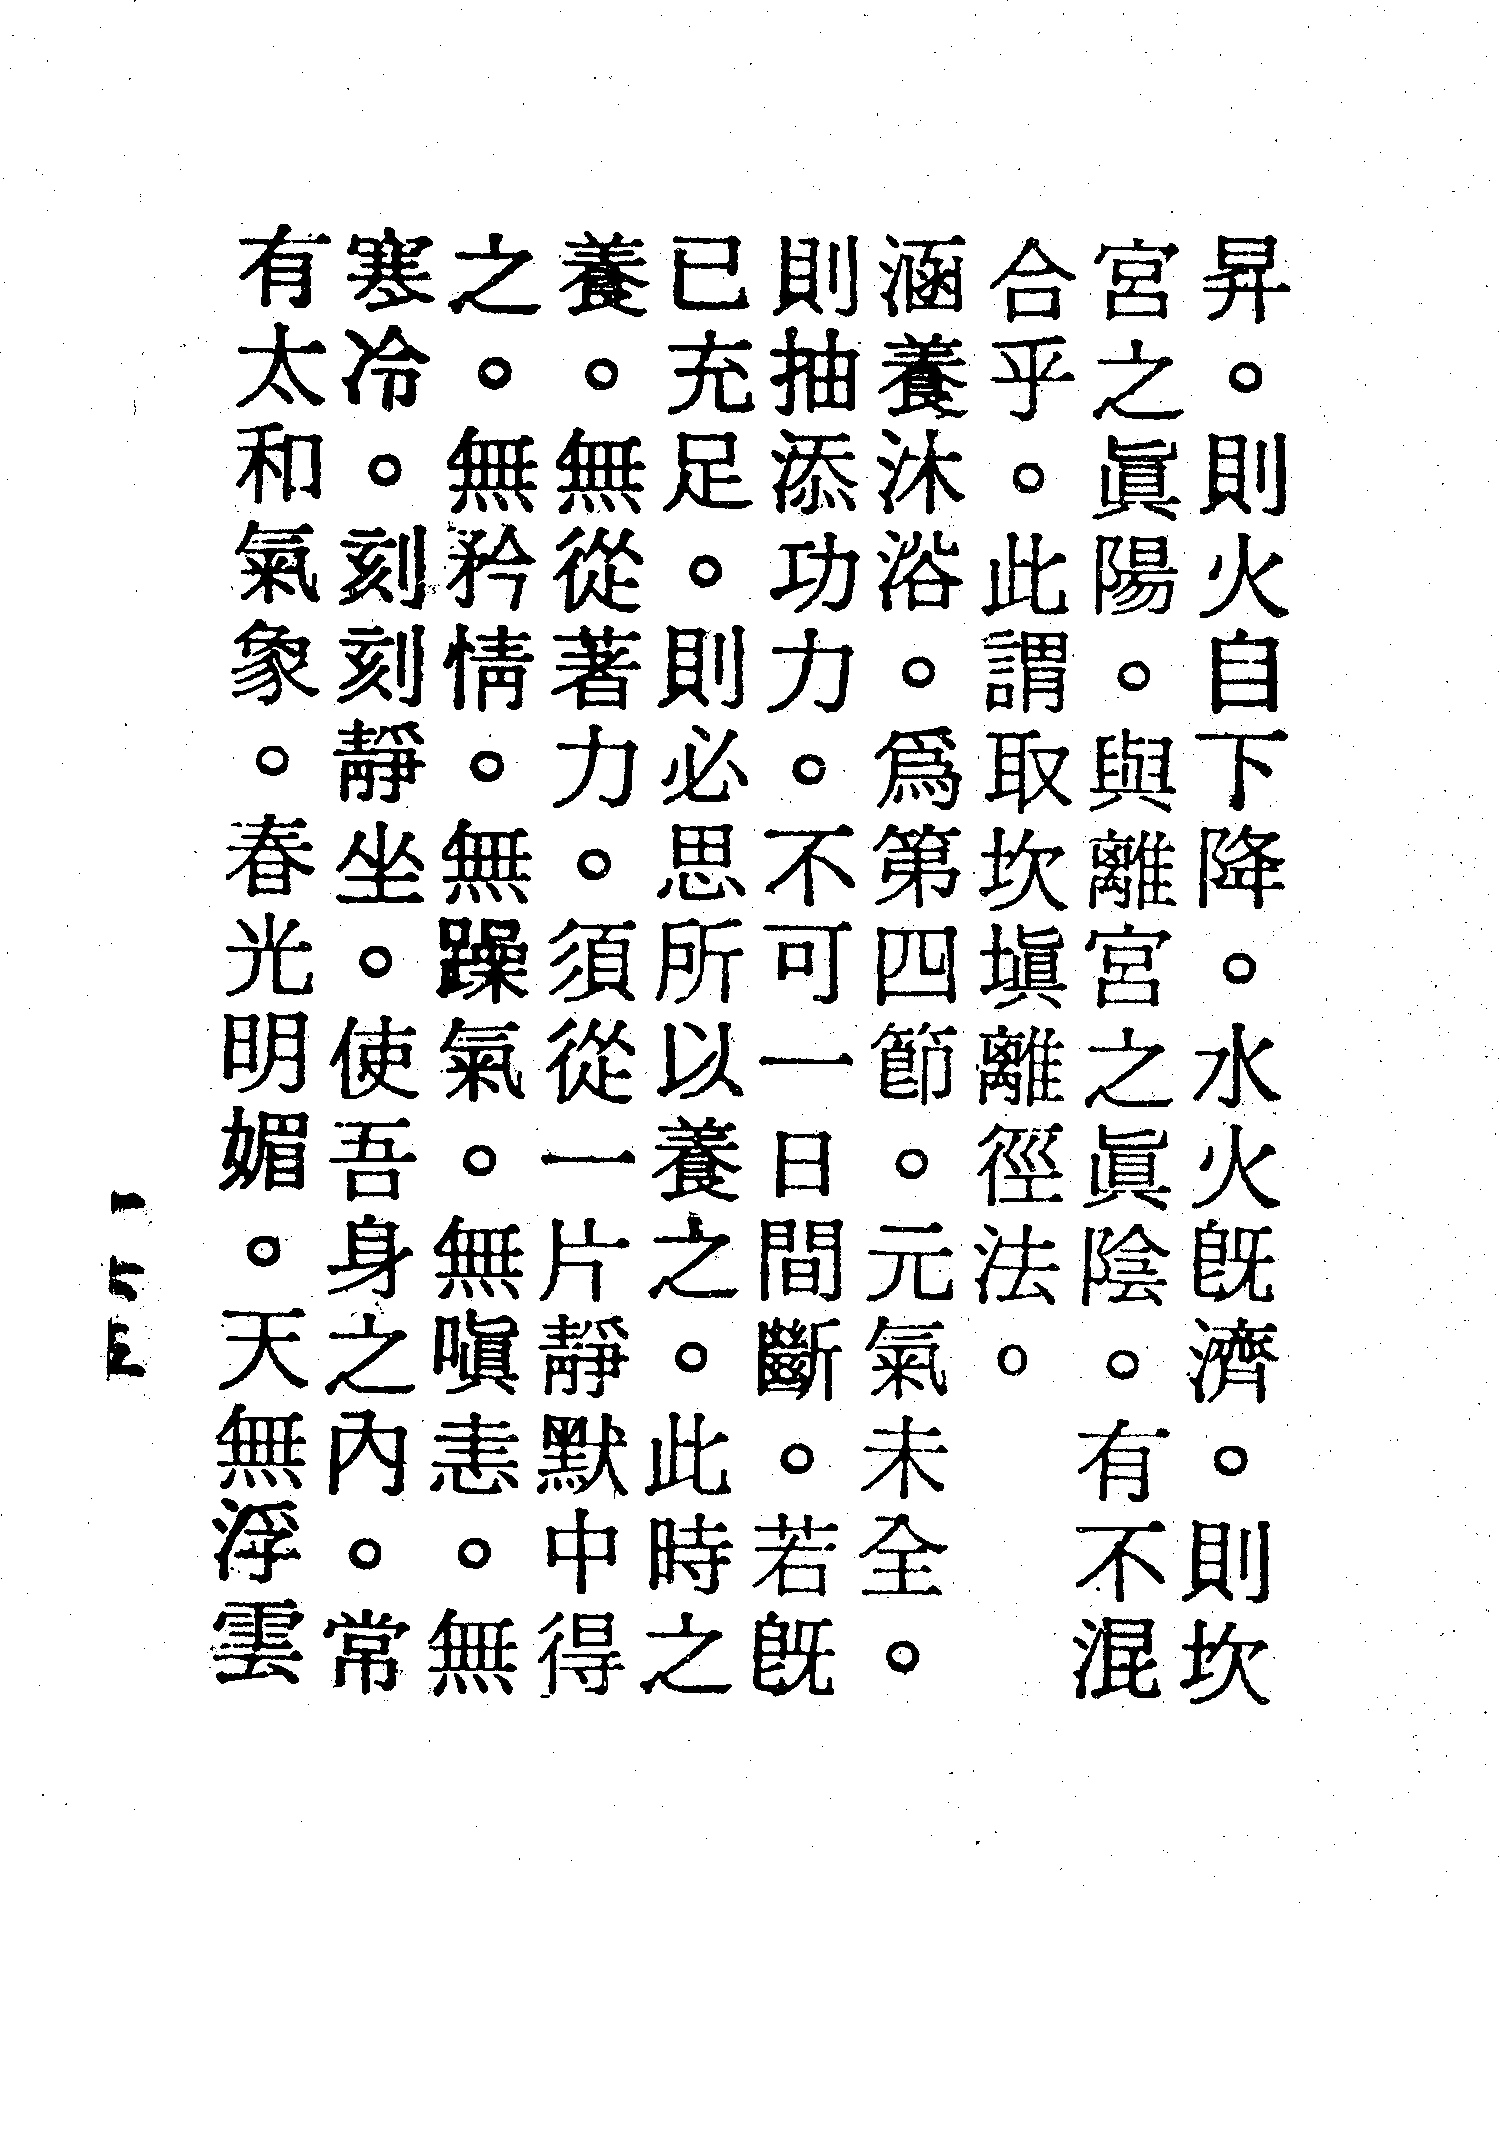 昇。則火自下降。水火旣濟。則坎
宮之眞陽。與離宮之眞陰。有不混
合乎。此謂取坎塡離徑法。
涵養沐浴。爲第四節。元氣未全。
則抽添功力。不可一日間斷。若旣
已充足。則必思所以養之。此時之
養。無從著力。須從一片靜默中得
之。無矜情。無躁氣。無嗔恚。無
寒冷。刻刻靜坐。使吾身之內。常
有太和氣象。春光明媚。天無浮雲